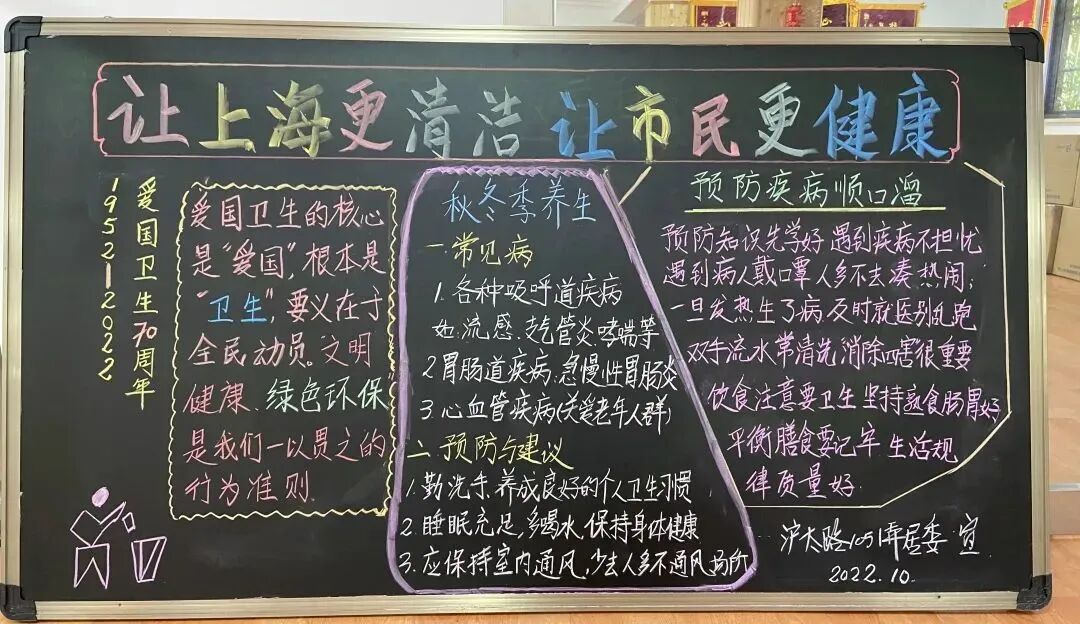 让上海更清洁 让市民更健康
爱国卫生70周年
1952-2022
爱国卫生的核心
是“爱国”,根本是
“卫生”,要义在于
全民动员。文明
健康、绿色环保
是我们一以贯之的
行为准则.
秋冬季养生
一.常见病
1.各种呼吸道疾病
如:流感、支气管炎、哮喘等
2胃肠道疾病:急慢性胃肠炎
3.心血管疾病(关爱老年人群)
二.预防与建议
1.勤洗手,养成良好的个人卫生习惯
2.睡眠充足,多喝水,保持身体健康
3.应保持室内通风,少去人多不通风场所
预防疾病顺口溜
预防知识先学好 遇到疾病不担忧
遇到病人戴口罩 人多不去凑热闹;
一旦发热生了病 及时就医别乱跑
双手流水常清洗 消除四害很重要
饮食注意要卫生 坚持熟食肠胃好
平衡膳食要记牢 生活规
律质量好.
沪太路1051弄居委 宣
2022.10.